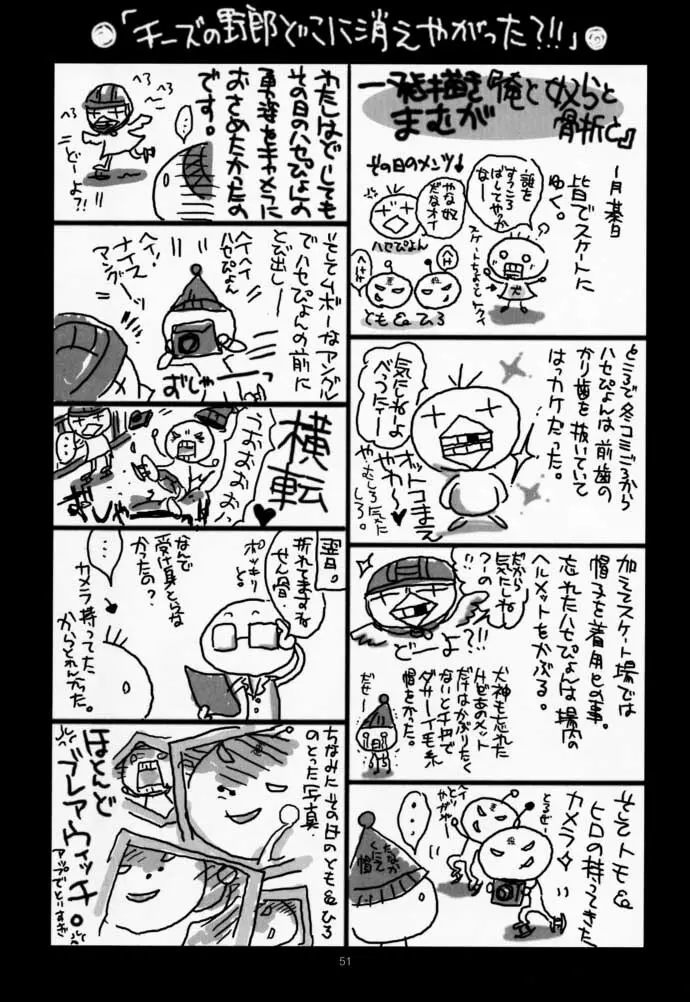 「チーズの野郎どこに消えやがった?!!」
一発描き
まむが
『俺と奴らと
骨折と』
1月某日
皆でスケートに
ゆく。
誰を
すっころ
ばしてやっか
なー
やな奴
だなオイ
その日のメンツ↓
ハセぴょん
とも&ひろ
ところで冬コミごろから
ハセぴょんは前歯の
かり歯を抜いていて
はっカケだった。
気にしねーよ
べつにィー
オットコまえ
やや〜♥
やむしろ気に
しろ。
加えてスケート場では
帽子を着用との事。
忘れたハセぴょんは場内の
ヘルメットをかぶる。
だから
気にしね
つーの
どーよ?!!
犬神も忘れた
けどあのメット
だけはかぶりたく
ないと千円で
ダサーイ毛糸
帽をかった。
だせー
そしてトモ&
ヒロの持ってきた
カメラ
わたしはどーしても
その日のハセぴょんの
勇姿をキャメラに
おさめたかったの
です。
へろ
へろ
どーよ?!!
そしてムボーなアングル
でハセぴょんの前に
とび出し——
ヘイヘイ
ハセぴょん
ヘイ!
ナイス
アングーッ
おしゃーーっ
横転
うおおおお
翌日。
折れてますね
せん骨
ポッキリ
と。
なんで
受け身とらな
かったの?
カメラ持ってた
からとれんかった。
ちなみにその日のとも&ひろ
のとった写真
ほとんど
ブレアウィッチ。
アップでとりすぎ
51